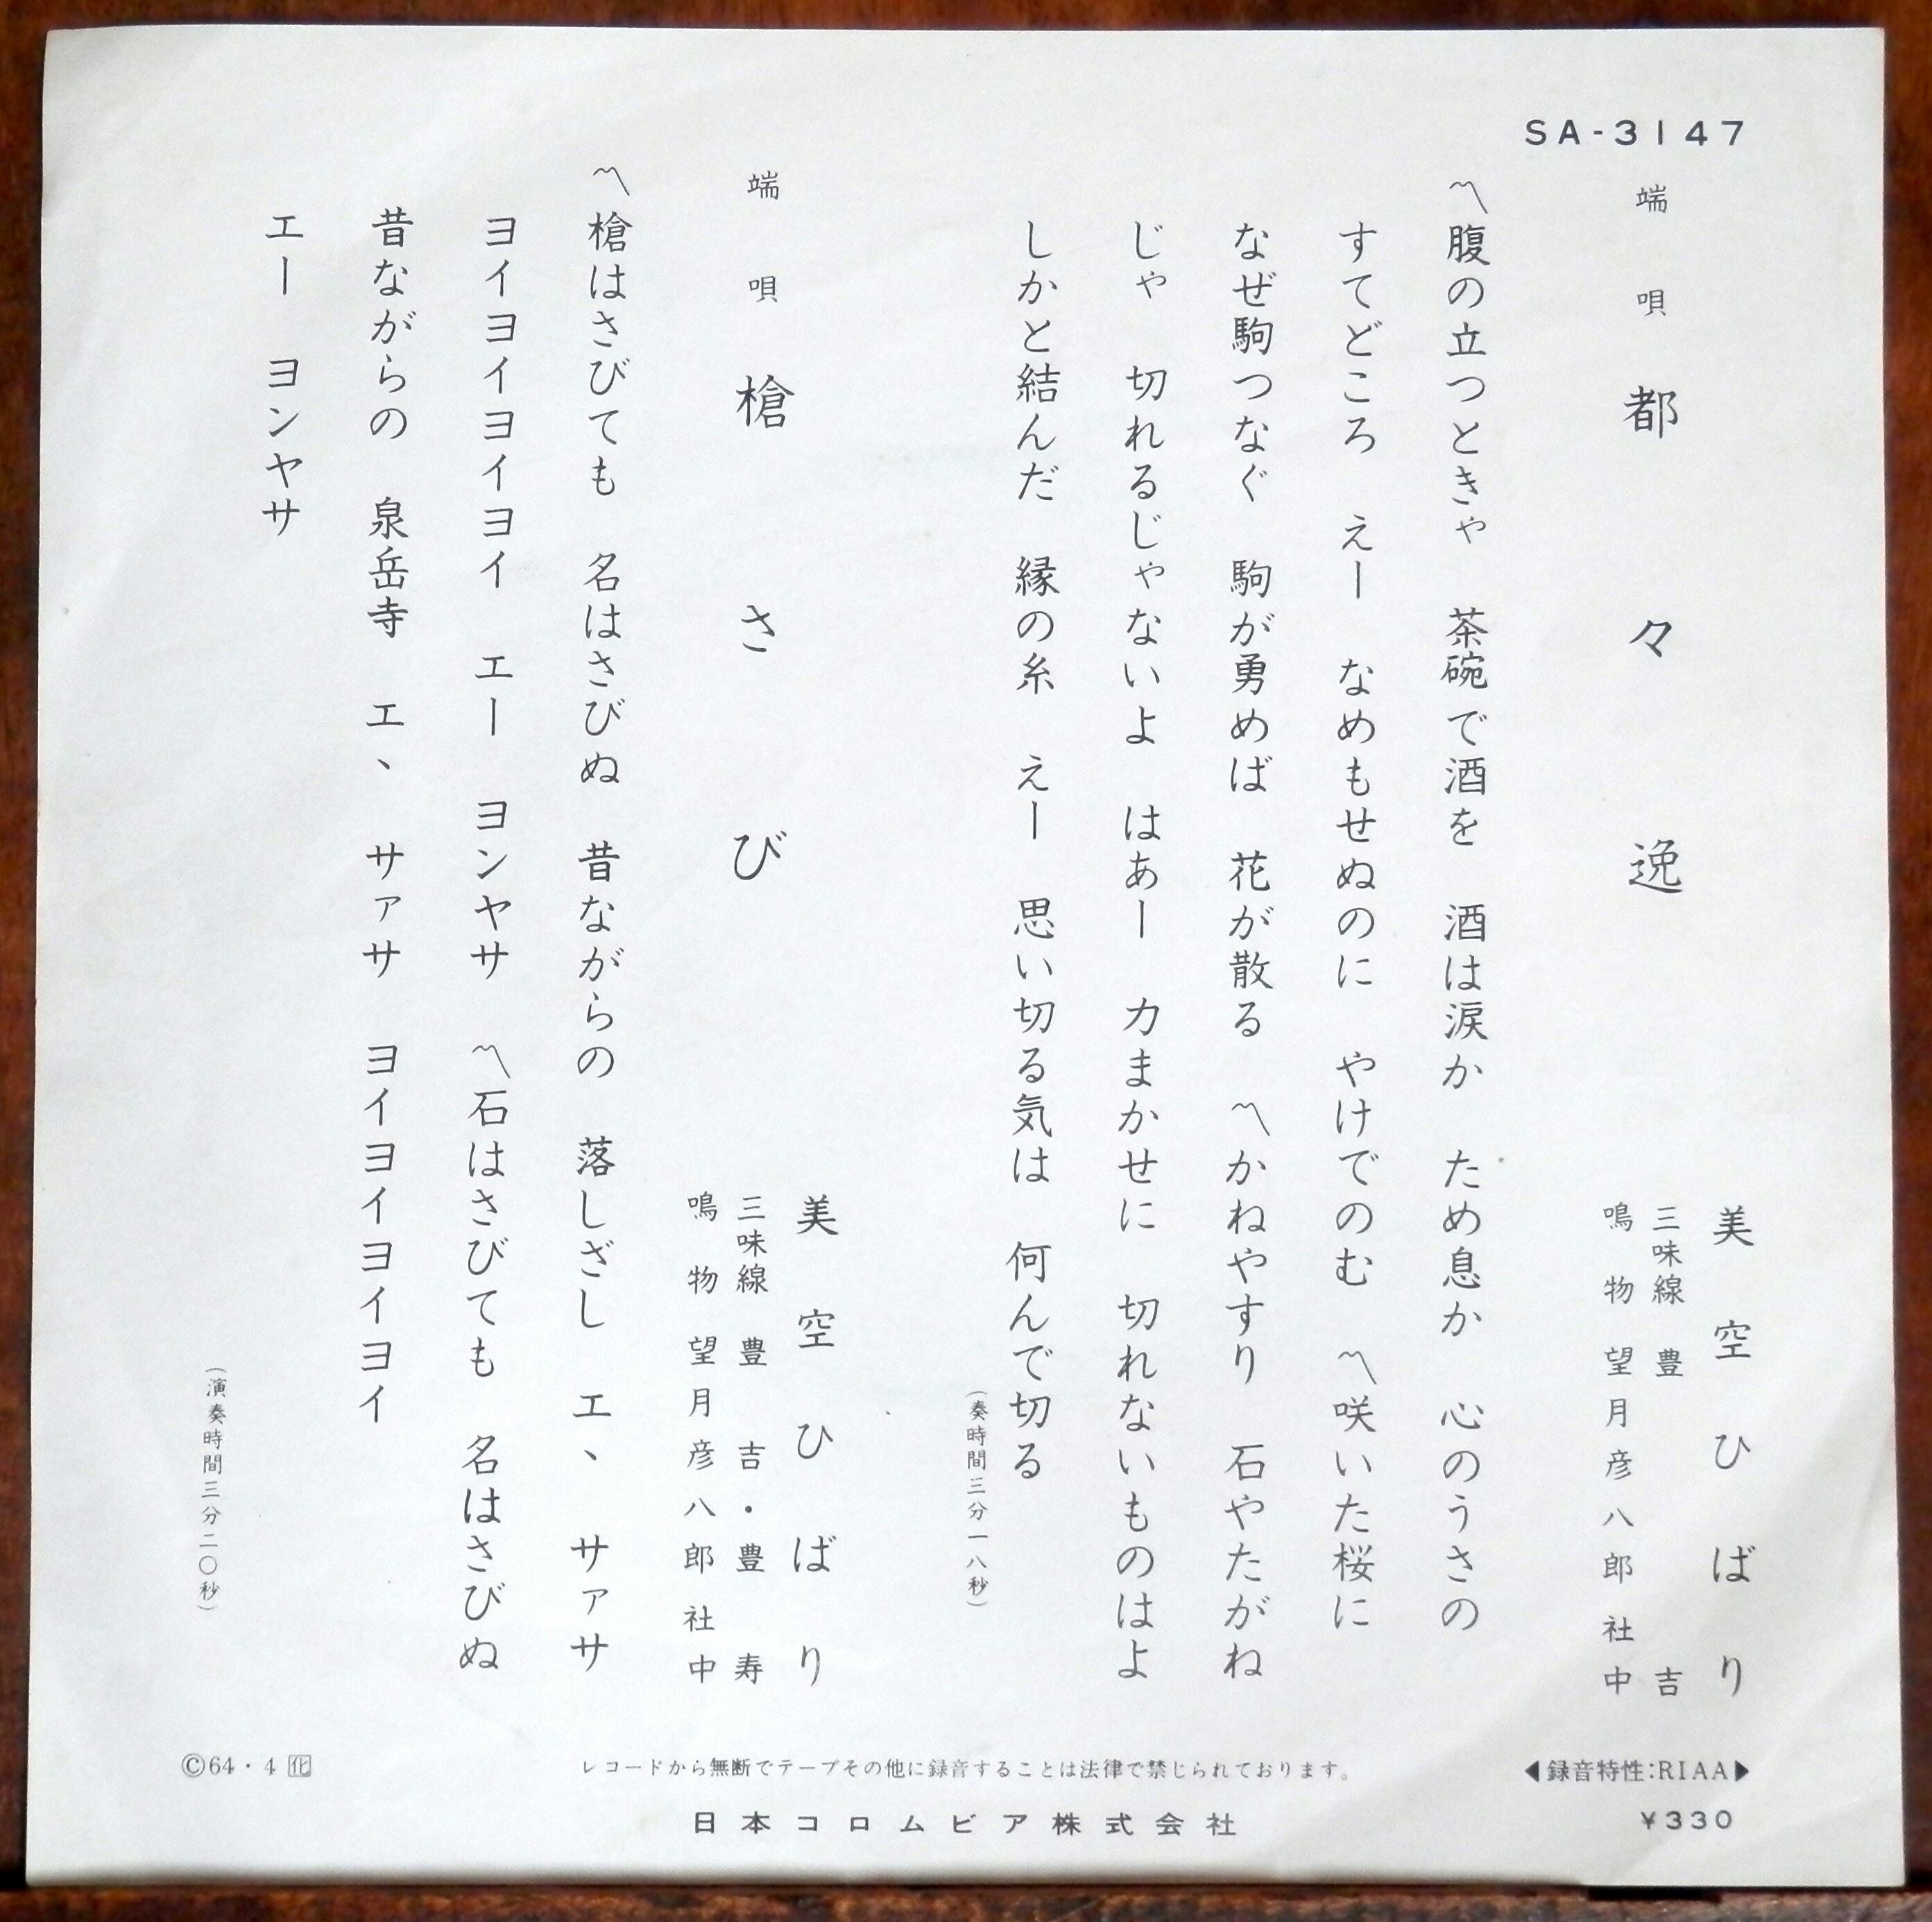 SA-3147
端唄 都々逸
美空ひばり
三味線 豊吉
鳴物 望月彦八郎社中
〽腹の立つときゃ 茶碗で酒を 酒は涙か ため息か 心のうさの
すてどころ えー なめもせぬのに やけでのむ 〽咲いた桜に
なぜ駒つなぐ 駒が勇めば 花が散る 〽かねやすり 石やたがね
じゃ 切れるじゃないよ はあー 力まかせに 切れないものはよ
しかと結んだ 縁の糸 えー 思い切る気は 何んで切る
(奏時間三分一八秒)
端唄 槍さび
美空ひばり
三味線 豊吉・豊寿
鳴物 望月彦八郎社中
〽槍はさびても 名はさびぬ 昔ながらの 落しざし エ、 サァサ
ヨイヨイヨイヨイ エー ヨンヤサ 〽石はさびても 名はさびぬ
昔ながらの 泉岳寺 エ、 サァサ ヨイヨイヨイヨイ
エー ヨンヤサ
(演奏時間三分二〇秒)
◀録音特性:RIAA▶
レコードから無断でテープその他に録音することは法律で禁じられております。
Ⓒ64・4 化
日本コロムビア株式会社
¥330